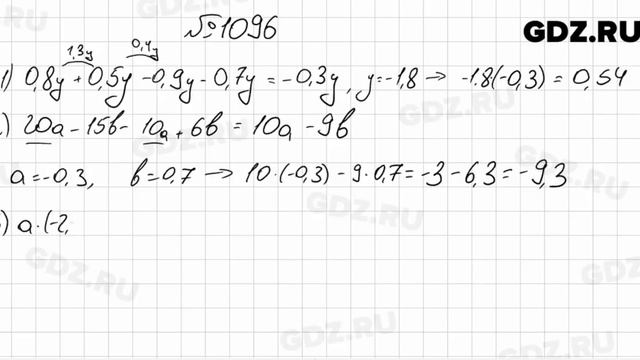 №1096
GDZ.RU
1,3y 0,4y
1) 0,8y + 0,5y - 0,9y - 0,7y = -0,3y, y=-1,8 → -1.8(-0,3) = 0,54
) 20a - 15b - 10a + 6b = 10a - 9b
a = -0,3, b = 0,7 → 10·(-0,3) - 9·0,7 = -3 - 6,3 = -9,3
) a·(-2,
GDZ.RU
GDZ.RU
GDZ.RU
GDZ.RU
GDZ.RU
GDZ.RU